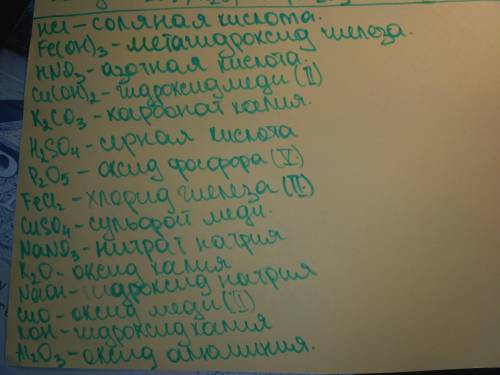 HCl - соляная кислота.
Fe(OH)3 - метагидроксид железа.
HNO3 - азотная кислота.
Cu(OH)2 - гидроксид меди (II)
K2CO3 - карбонат калия.
H2SO4 - серная кислота
P2O5 - оксид фосфора (V)
FeCl2 - хлорид железа (II)
CuSO4 - сульфат меди.
NaNO3 - нитрат натрия
K2O - оксид калия
NaOH - гидроксид натрия
CuO - оксид меди (II)
KOH - гидроксид калия
Al2O3 - оксид алюминия.